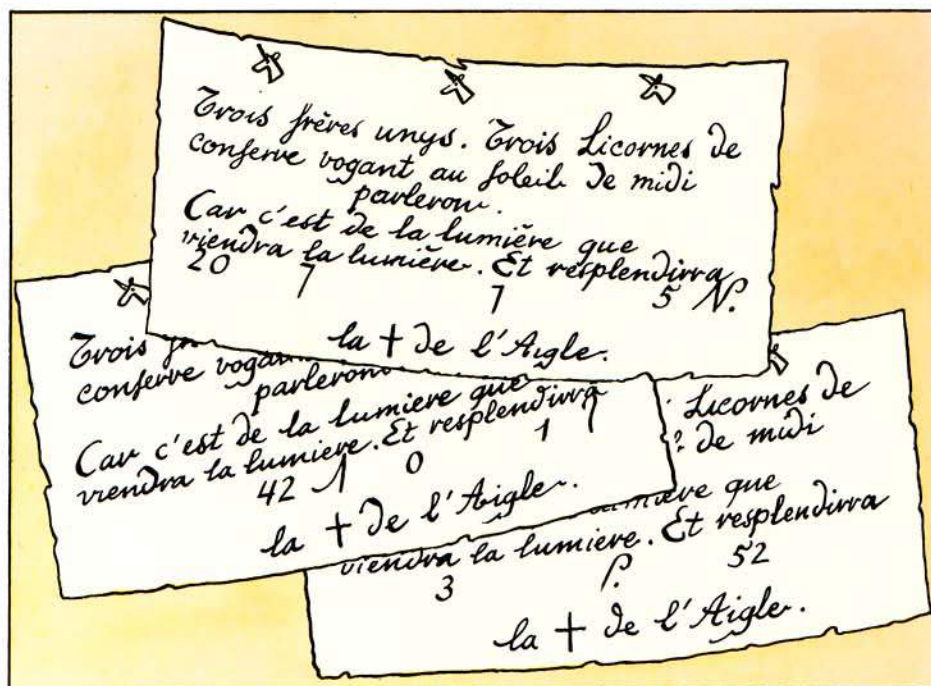 Trois frères unys. Trois Licornes de
conserve vogant au soleil de midi
parleront.
Car c'est de la lumière que
viendra la lumière. Et resplendirra
20 7 7 5 N.
la + de l'Aigle.
Trois
conserve
parleront
Car c'est de la lumière que
viendra la lumière. Et resplendirra
42 0 1
la + de l'Aigle.
Licornes de
de midi
que
viendra la lumière. Et resplendirra
3 52
la + de l'Aigle.